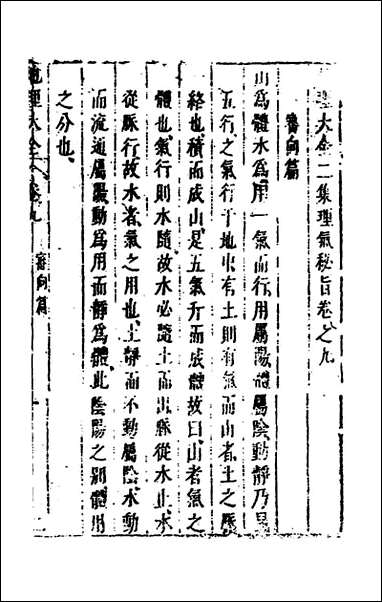 理大全二集理氣秘旨卷之九
審向篇
山為體水為用一氣而行用屬陽體屬陰動靜乃見
五行之氣行于地中有土則有氣而山者土之
絡也積而成山是五氣行而成體故曰山者氣之
體也氣行則水隨故水必隨土而出脈從水止水
從脈行故水者氣之用也土靜而不動屬陰水動
而流通屬陽動為用而靜為體此陰陽之別體用
之分也
地理大全二集卷九
審向篇